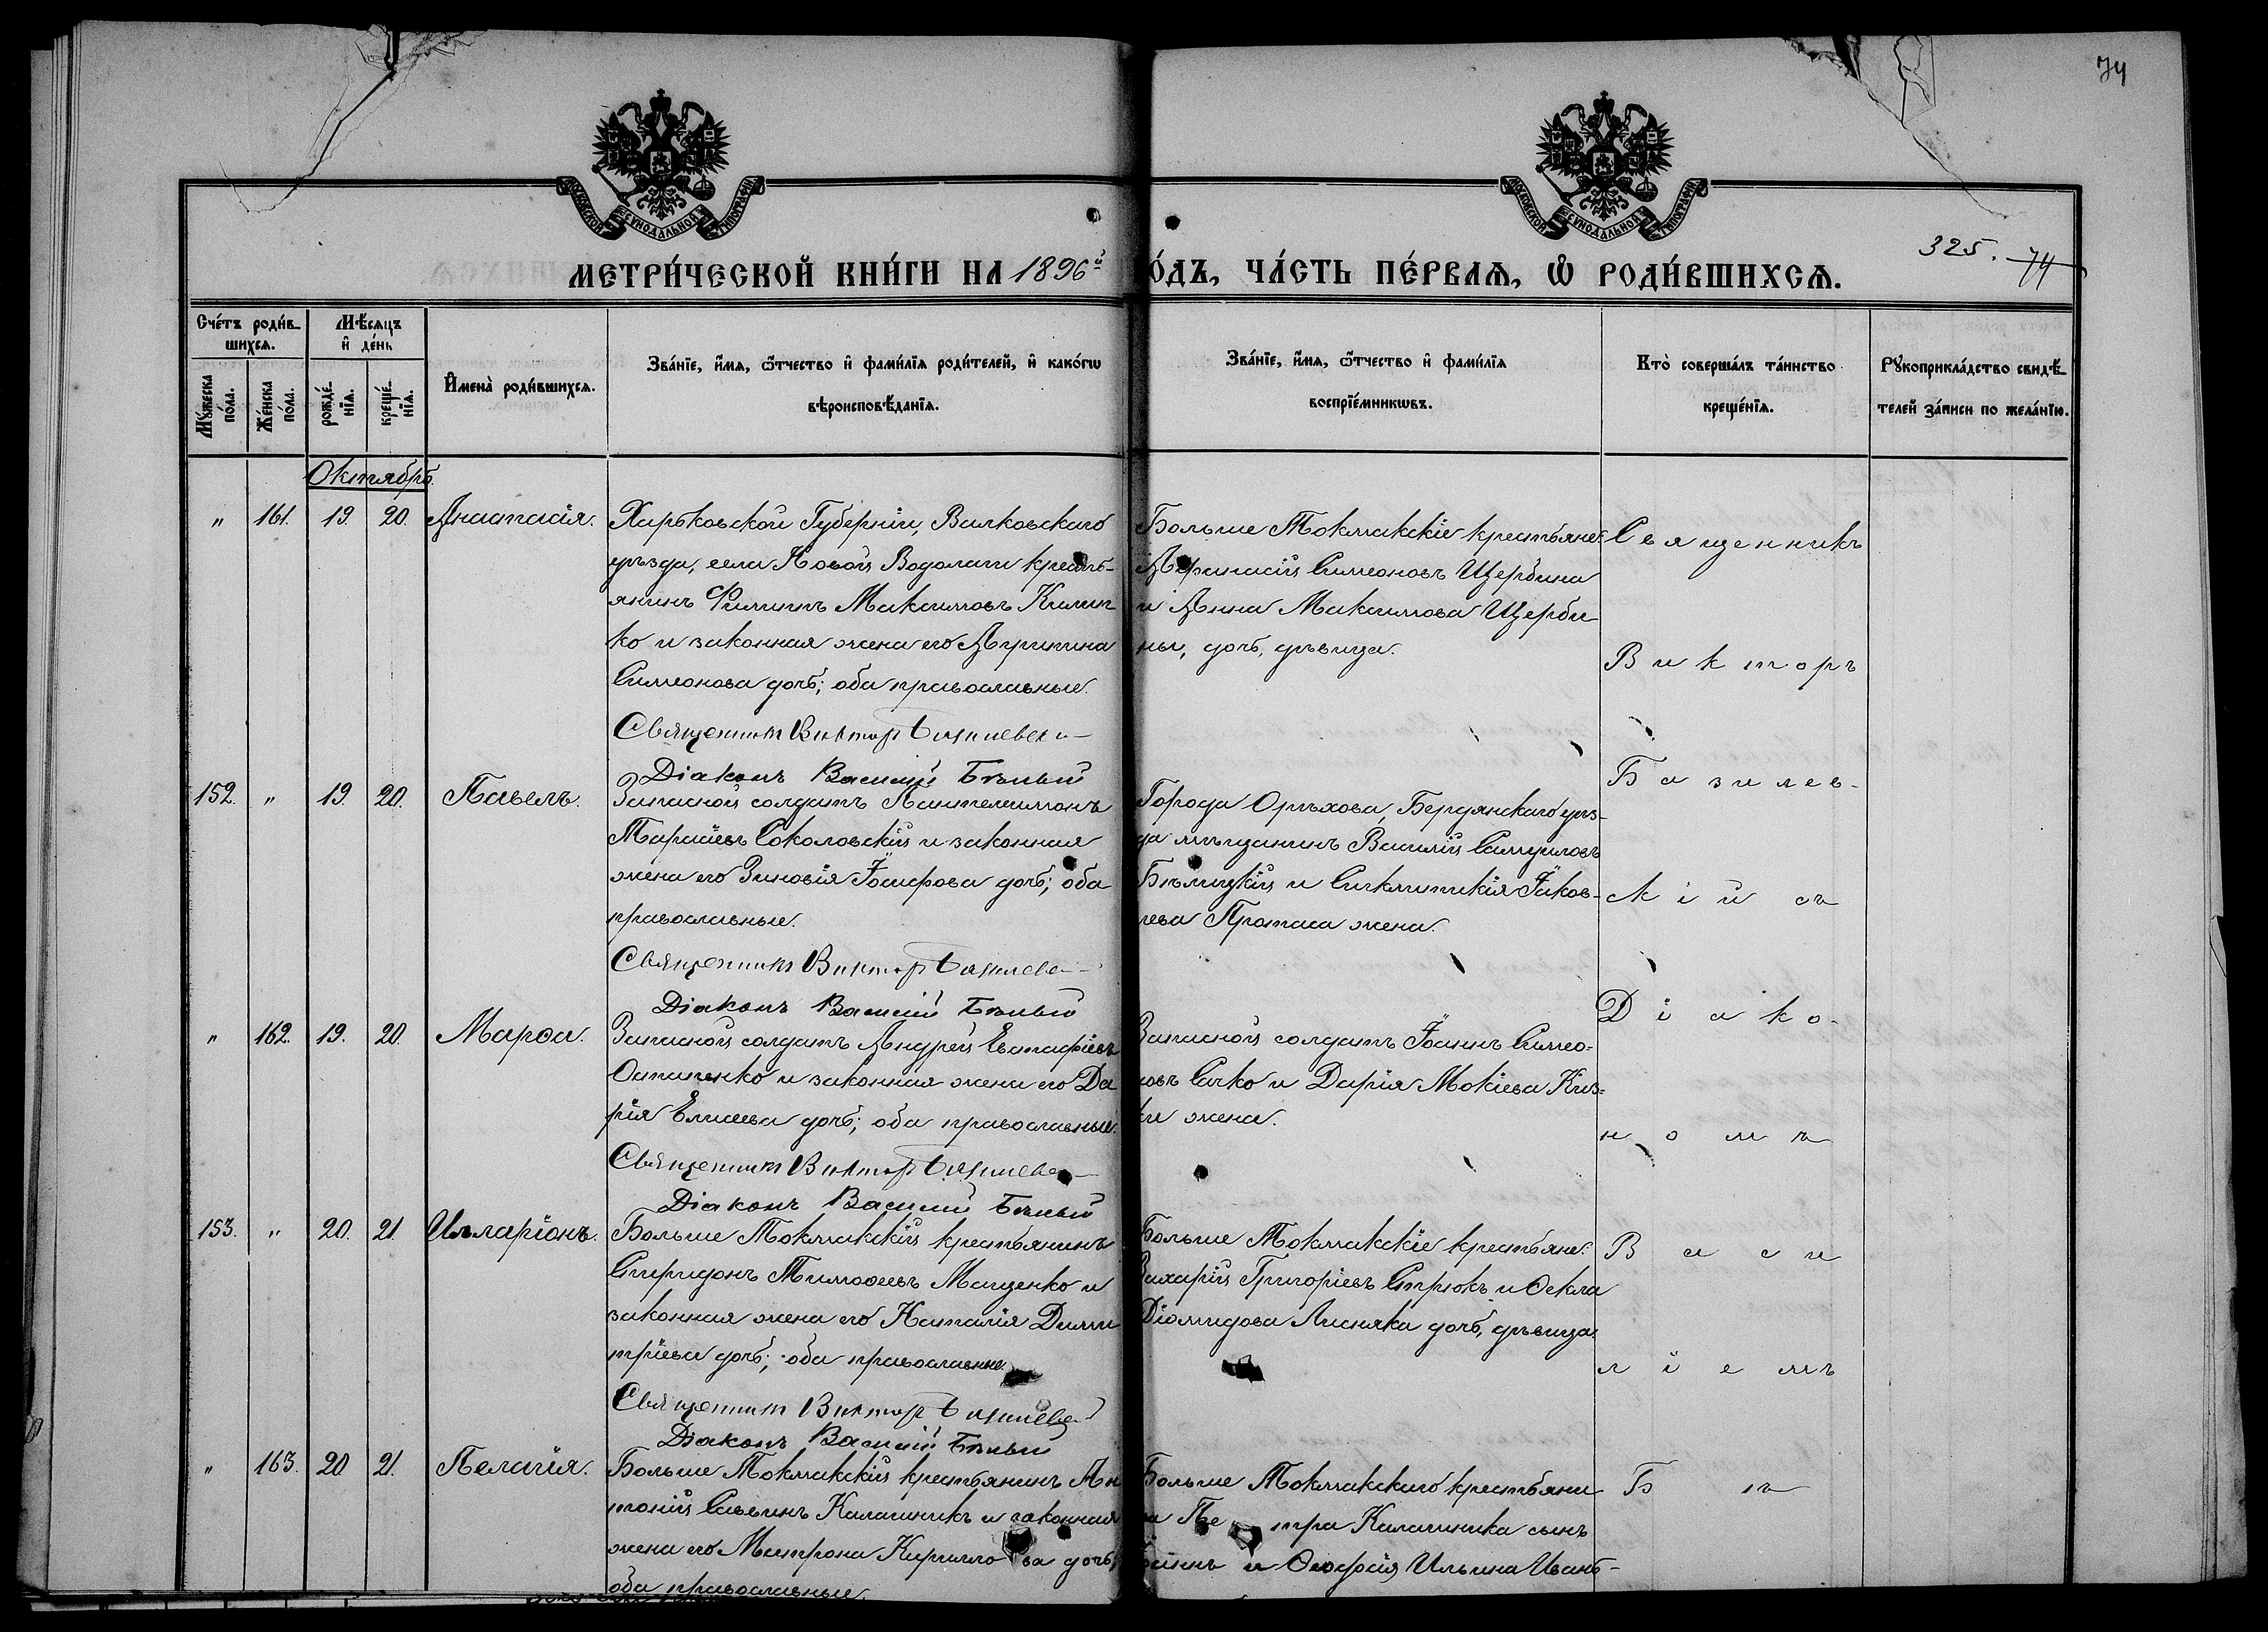 74
МОСКОВСКОЙ СѴНОДАЛЬНОЙ ТИПОГРАФІИ
МОСКОВСКОЙ СѴНОДАЛЬНОЙ ТИПОГРАФІИ
325. 74
МЕТРИ́ЧЕСКОЙ КНИ́ГИ НА 1896й
О́ДЪ, ЧА́СТЬ ПЕ́РВАѦ, Ѡ҆ РОДИ́ВШИХСѦ.
Сче́тъ роди́в-
шихсѧ.
Мꙋ́жеска по́ла.
Же́нска по́ла.
Мѣ́сѧцъ
и҆ де́нь
рожде́-нїѧ.
креще́-нїѧ.
И҆мена̀ роди́вшихсѧ.
Зва́нїе, и҆́мѧ, ѻ҆́тчество и҆ фами́лїѧ роди́телей, и҆ како́гѡ
вѣроисповѣ́данїѧ.
Зва́нїе, и҆́мѧ, ѻ҆́тчество и҆ фами́лїѧ
воспрїе́мникѡвъ.
Кто̀ соверша́лъ та́инство
креще́нїѧ.
Рꙋкоприкла́дство свидѣ́-
телей за́писи по жела́нїю.
Октябрь.
" 161. 19. 20. Анастасія.
Харьковской Губерніи, Валковскаго
уѣзда, села Новой Водолаги кресть-
янинъ Филиппъ Максимовъ Килип
ко и законная жена его Агрипина
Симеонова дочь; оба православные.
Священникъ Викторъ Базилевск
Діаконъ Василій Бѣлый
Больше Токмакскіе крестьяне:
Афанасій Симеоновъ Щербина
и Анна Максимова Щерби-
ны, дочь, дѣвица.
152. " 19. 20. Павелъ.
Запасной солдатъ Пантелеимонъ
Тарасіевъ Соколовскій и законная
жена его Зиновія Іосифова дочь; оба
православные.
Священникъ Викторъ Базилевс
Діаконъ Василій Бѣлый
Города Орѣхова, Бердянскаго уѣз-
да мѣщанинъ Василій Самуиловъ
Бѣлицкій и Синклитикія Іаков-
лева Протаса жена.
" 162. 19. 20. Марѳа.
Запасной солдатъ Андрей Евстафіевъ
Остапенко и законная жена его Да
рія Елисеева дочь; оба православные.
Священникъ Викторъ Базилевс
Діаконъ Василій Бѣлый
Запасной солдатъ Іоаннъ Симео-
новъ Сачко и Дарія Мокіева Киз-
ки жена.
153. " 20. 21. Илларіонъ.
Больше Токмакскій крестьянинъ
Спиридонъ Тимоѳеевъ Маценко и
законная жена его Наталія Дими
тріева дочь; оба православные.
Священникъ Викторъ Базилевс
Діаконъ Василій Бѣлый
Больше Токмакскіе крестьяне:
Захарій Григоріевъ Стрюкъ и Ѳекла
Діомидова Лисняка дочь, дѣвица
" 163. 20 21. Пелагія.
Больше Токмакскій крестьянинъ Ан
тоній Саввинъ Калашникъ и законная
жена его Матрона Кирилло ва дочь;
оба православные.
Больше Токмакскаго крестьяни
на Пе тра Калашника сынъ
Іоаннъ и Ѳеофрія Ильина Ивань-
Священникъ
Викторъ
Базилев-
скій съ
Діако-
номъ
Васи
ліемъ
Бѣ